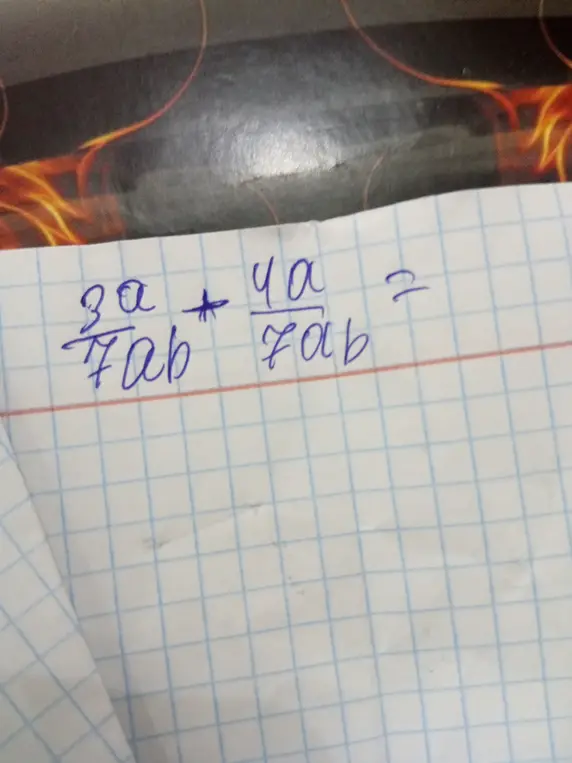 3a/7ab + 4a/7ab =